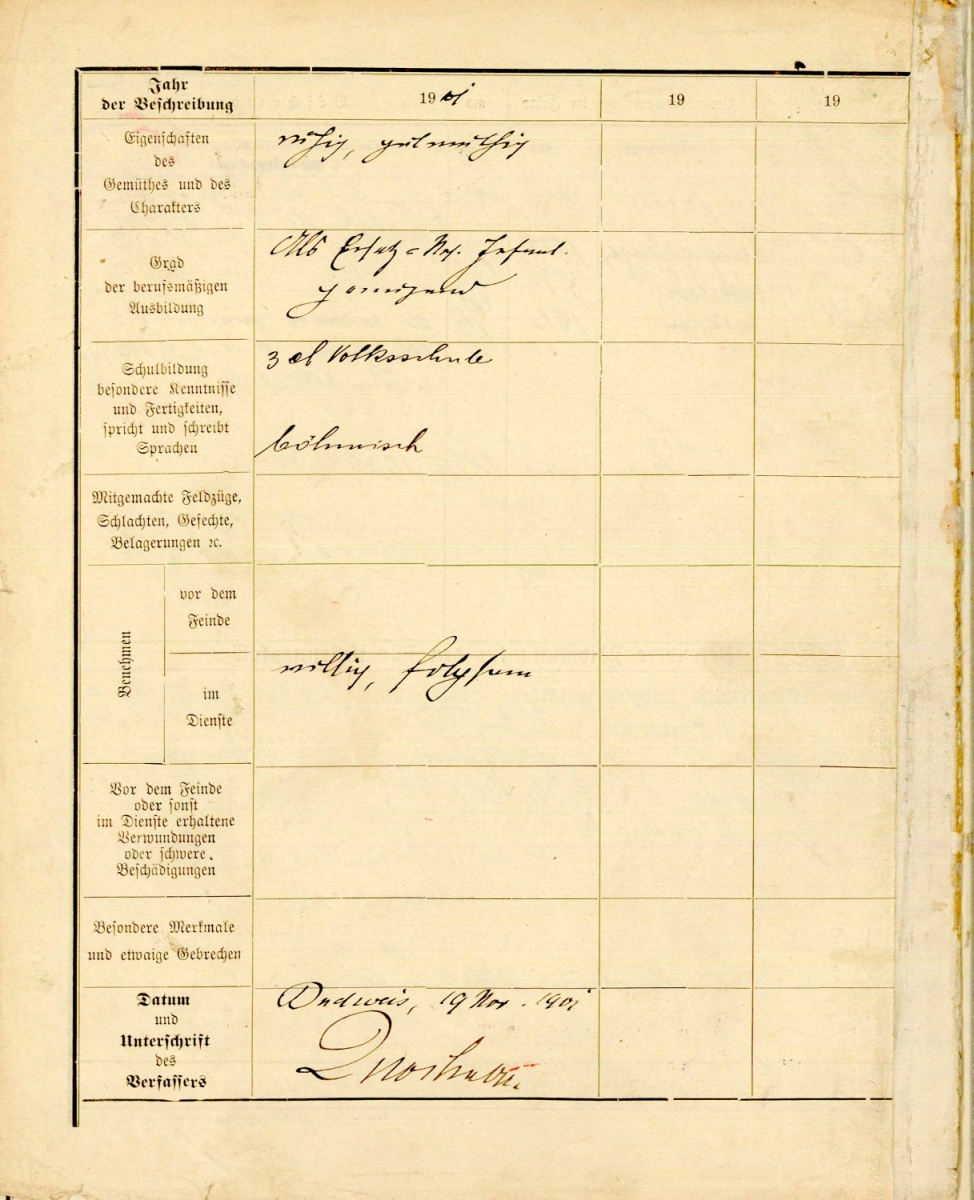 Jahr
der Beschreibung
1901
19
19
Eigenschaften
des
Gemüthes und des
Charakters
ruhig, gutmüthig
Grad
der berufsmäßigen
Ausbildung
Als Ersatz=Res. Infant.
genügend
Schulbildung
besondere Kenntnisse
und Fertigkeiten,
spricht und schreibt
Sprachen
3 cl Volksschule
böhmisch
Mitgemachte Feldzüge,
Schlachten, Gefechte,
Belagerungen ꝛc.
Benehmen
vor dem
Feinde
im
Dienste
willig, folgsam
Vor dem Feinde
oder sonst
im Dienste erhaltene
Verwundungen
oder schwere
Beschädigungen
Besondere Merkmale
und etwaige Gebrechen
Datum
und
Unterschrift
des
Verfassers
Budweis, 19 Nov. 1901